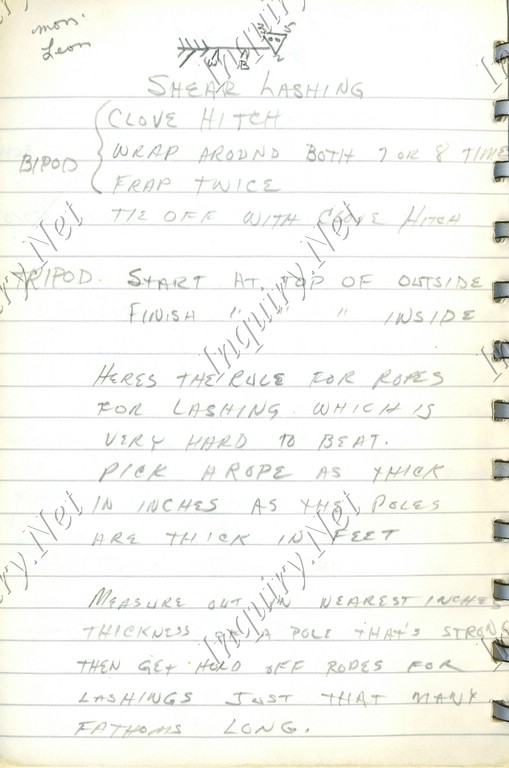 mon.
Leon
W
B
2
SHEAR LASHING
CLOVE HITCH
BIPOD WRAP AROUND BOTH 7 OR 8 TIME
FRAP TWICE
TIE OFF WITH CLOVE HITCH
TRIPOD. START AT TOP OF OUTSIDE
FINISH " " " INSIDE
HERES THE RULE FOR ROPES
FOR LASHING. WHICH IS
VERY HARD TO BEAT.
PICK A ROPE AS THICK
IN INCHES AS THE POLES
ARE THICK IN FEET
MEASURE OUT IN NEAREST INCHES
THICKNESS OF A POLE THAT'S STRONG
THEN GET HOLD OFF ROPES FOR
LASHINGS JUST THAT MANY
FATHOMS LONG.
Inquiry.Net
Inquiry.Net
Inquiry.Net
Inquiry.Net
Inquiry.Net